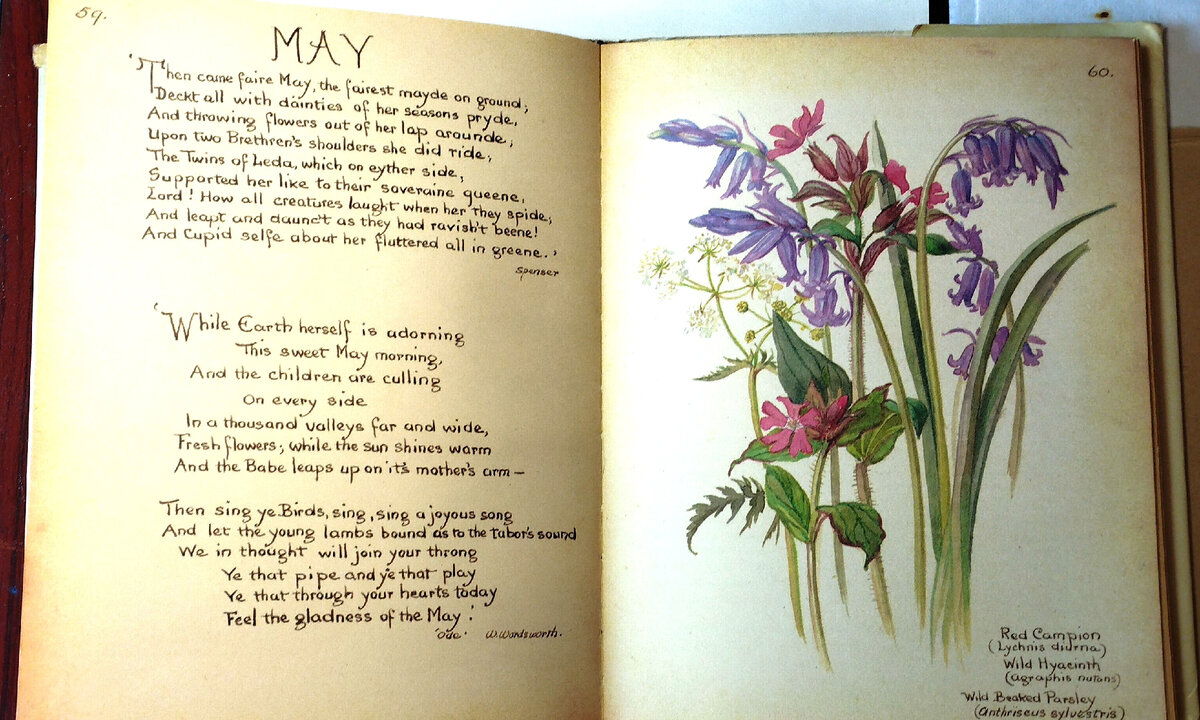 59.
MAY
'Then came faire May, the fairest mayde on ground;
Deckt all with dainties of her seasons pryde,
And throwing flowers out of her lap arounde;
Upon two Brethren's shoulders she did ride;
The Twins of Leda, which on eyther side,
Supported her like to their soveraine queene,
Lord! How all creatures laught when her they spide,
And leapt and daunc't as they had ravish't beene!
And Cupid selfe about her fluttered all in greene.'
Spenser
'While Earth herself is adorning
This sweet May morning,
And the children are culling
On every side
In a thousand valleys far and wide,
Fresh flowers; while the sun shines warm
And the Babe leaps up on it's mother's arm —
Then sing ye Birds, sing, sing a joyous song
And let the young lambs bound as to the tabor's sound
We in thought will join your throng
Ye that pipe and ye that play
Ye that through your hearts today
Feel the gladness of the May!
'Ode'. W. Wordsworth.
60.
Red Campion
(Lychnis diurna)
Wild Hyacinth
(agraphis nutans)
Wild Beaked Parsley
(Anthriscus sylvestris)